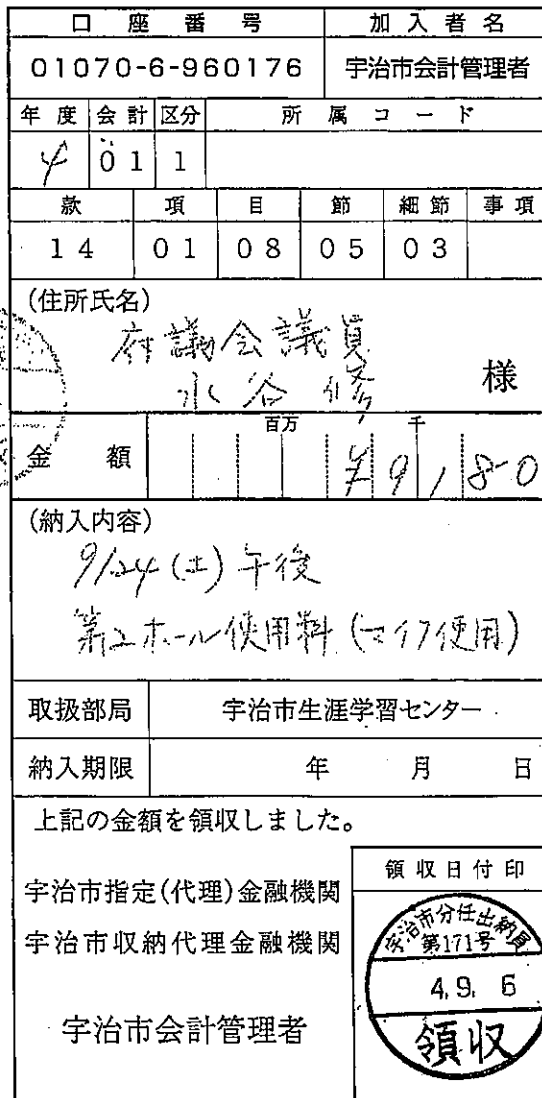 口座番号 加入者名
01070-6-960176 宇治市会計管理者
年度 会計 区分 所属コード
4 01 1
款 項 目 節 細節 事項
14 01 08 05 03
(住所氏名)
府議会議員
水谷修 様
百万 千
金額 ¥9,180
(納入内容)
9/24(土)午後
第2ホール使用料(マイク使用)
取扱部局 宇治市生涯学習センター
納入期限 年 月 日
上記の金額を領収しました。
領収日付印
宇治市指定(代理)金融機関
宇治市収納代理金融機関
宇治市会計管理者
宇治市分任出納員
第171号
4.9.6
領収